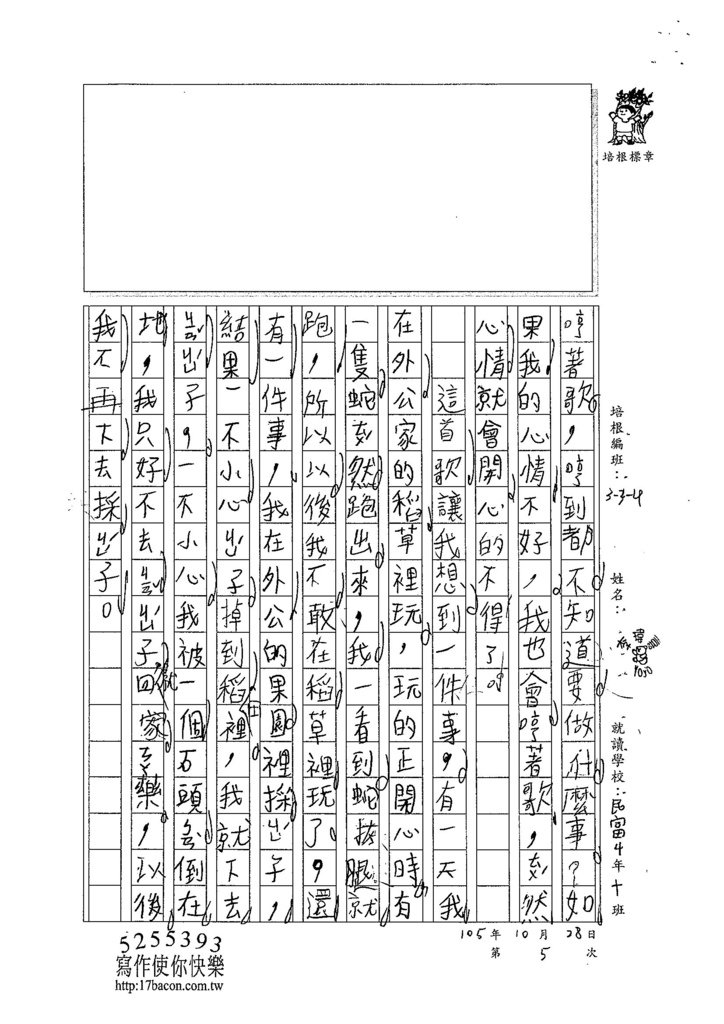 培根標章
培根編班：3-3-4
姓名：
就讀學校：民富 4年十班
105年10月28日
第5次
哼著歌，哼到都不知道要做什麼事？如
果我的心情不好，我也會哼著歌，忽然
心情就會開心的不得了。
這首歌讓我想到一件事，有一天我
在外公家的稻草裡玩，玩的正開心時有
一隻蛇忽然跑出來，我一看到蛇拔腿就
跑，所以以後我不敢在稻草裡玩了，還
有一件事，我在外公的果園裡採出子，
結果一不小心出子掉到稻田裡，我就下去
出子，一不小心我被一個石頭倒在
地，我只好不去出子就回家了，以後
我不再下去採出子。
5255393
寫作使你快樂
http:17bacon.com.tw